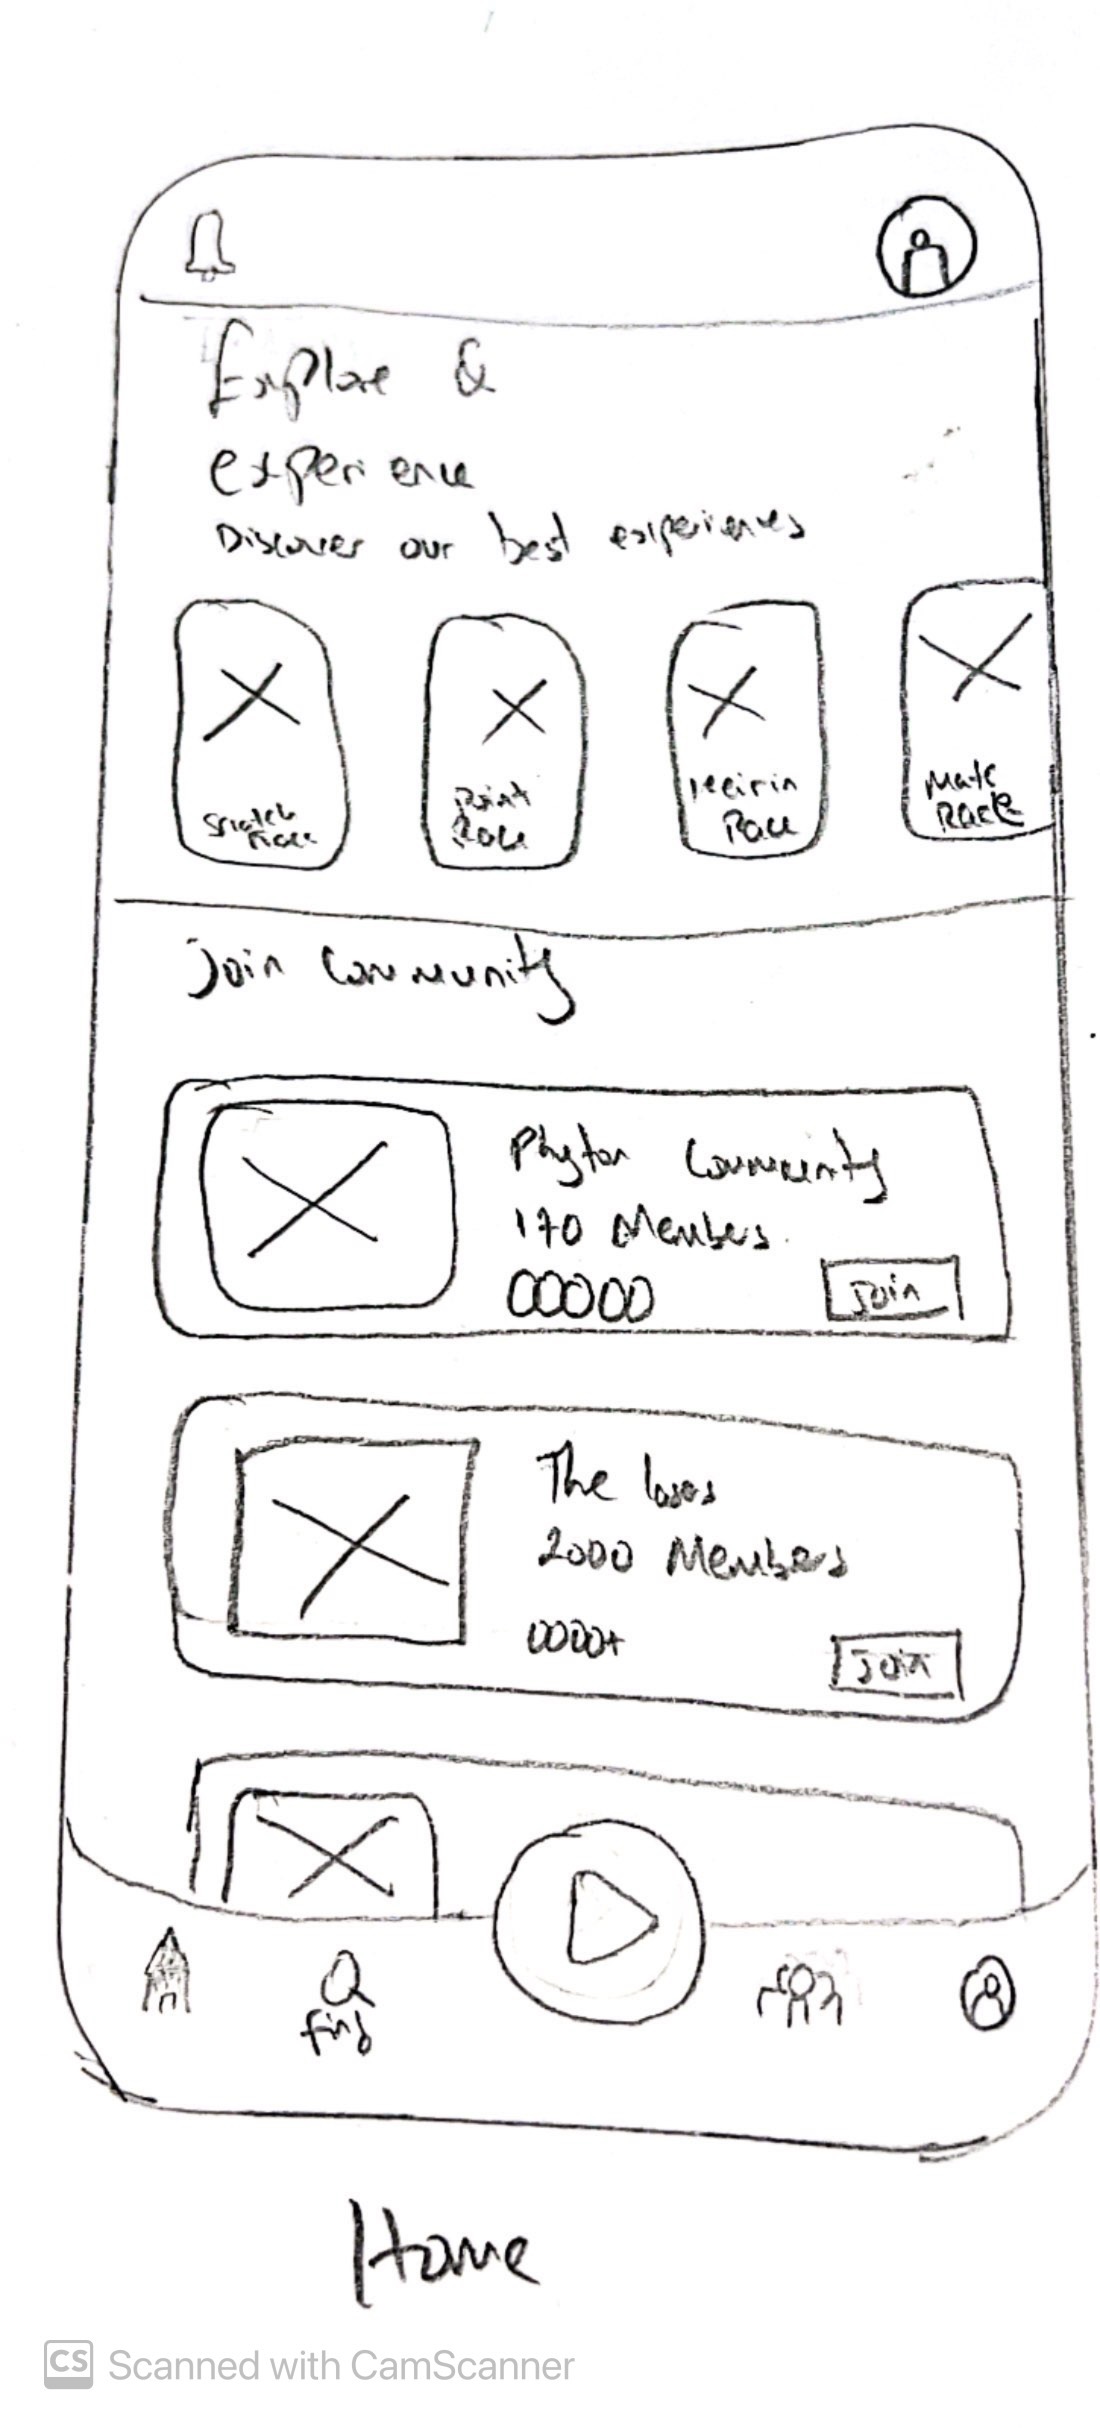 Explore &
experience
Discover our best experiences
Scratch
Race
Point
Race
Keirin
Race
Mate
Race
Join Community
Phyton Community
170 Members
Join
The
2000 Members
Join
find
Home
CS Scanned with CamScanner